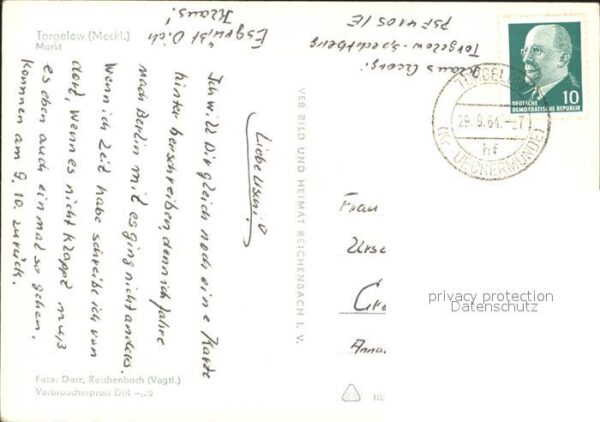 Torgelow (Meckl.)
Markt
Liebe Uschi!
Ich will Dir gleich noch eine Karte
hinterherschreiben, denn ich fahre
nach Berlin mit es ging nicht anders.
Wenn ich Zeit habe schreibe ich von
dort, wenn es nicht klappt muß
es eben auch einmal so gehen.
Kommen am 9.10. zurück.
Es grüßt Dich
Klaus!
Foto: Darr, Reichenbach (Vogtl.)
Verbraucherpreis DM -,20
VEB BILD UND HEIMAT REICHENBACH I. V.
Klaus
Torgelow-Spechtberg
PSF 4105 IE
DEUTSCHE
DEMOKRATISCHE REPUBLIK
10
TORGELOW
29.9.64.-7
hf
(Kr UECKERMÜNDE)
Frau
Urse
privacy protection
Datenschutz